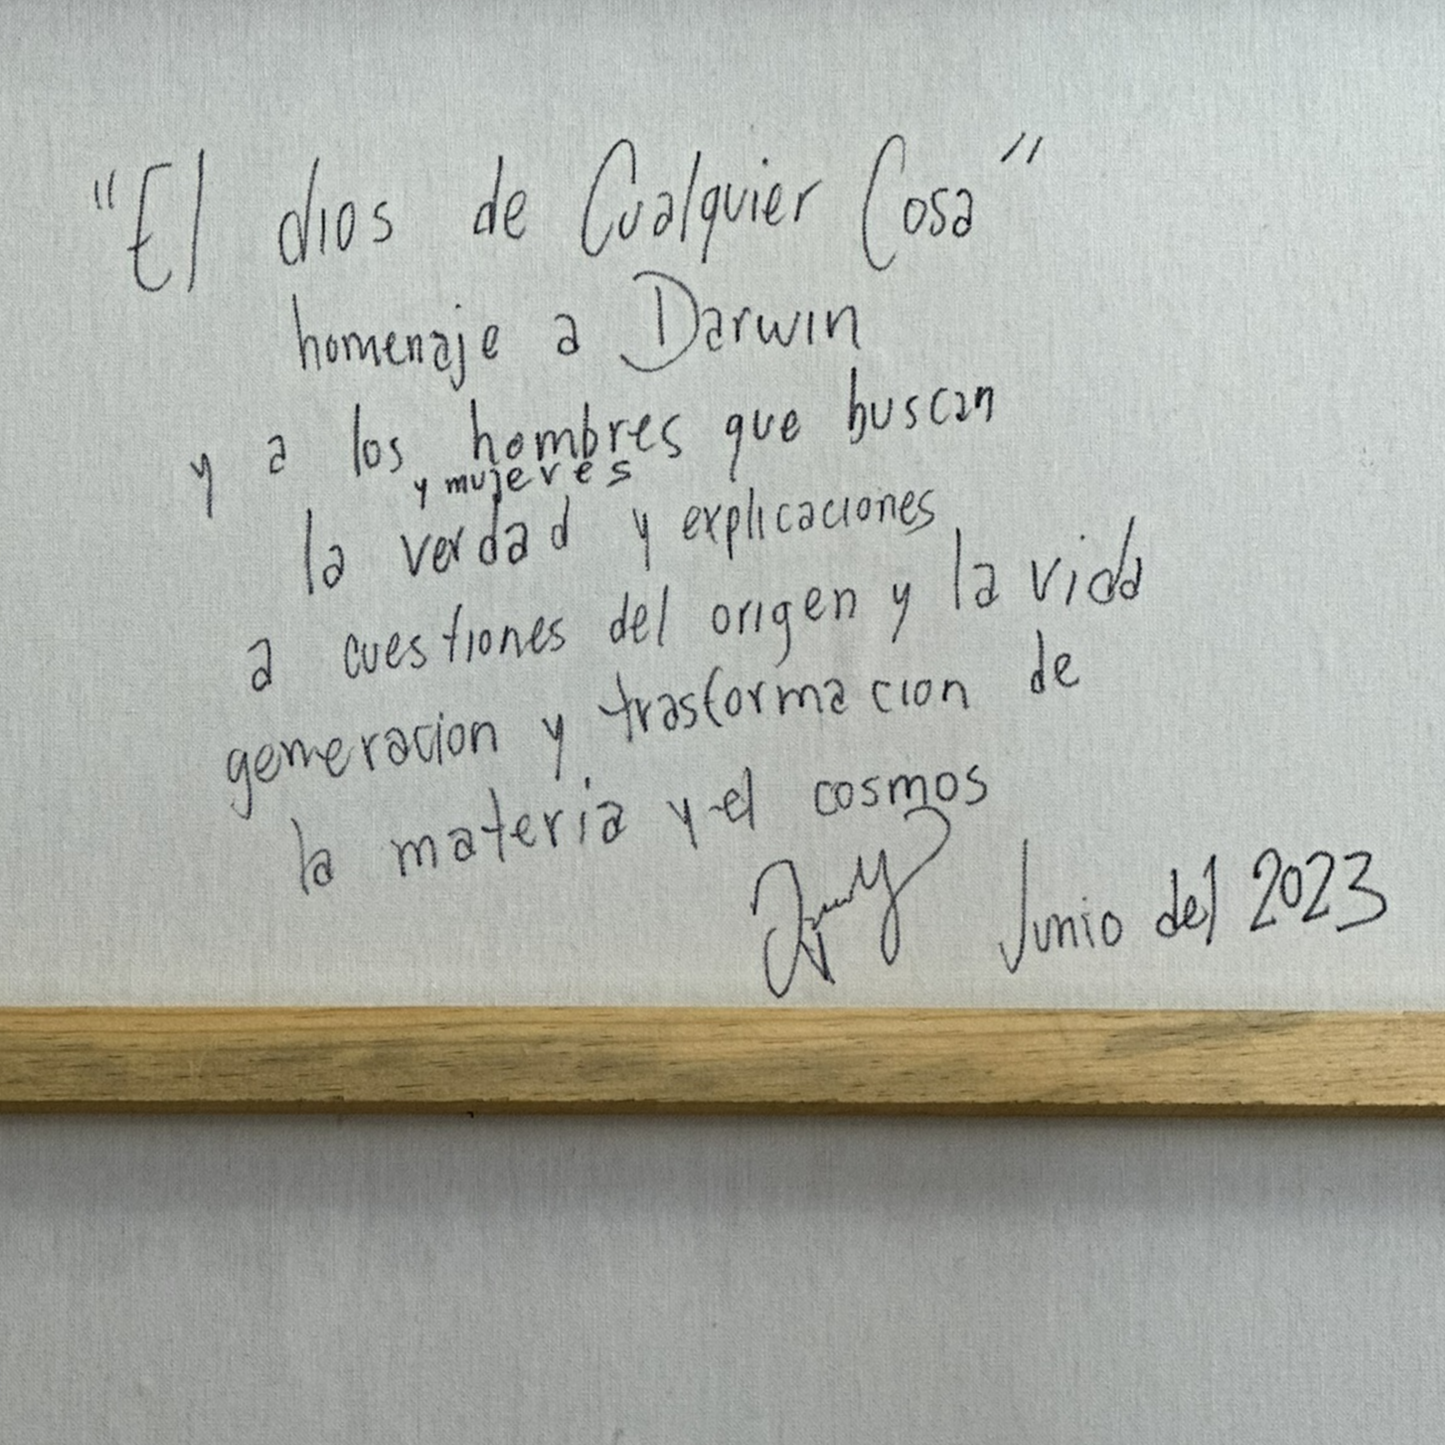 "El dios de Cualquier Cosa"
homenaje a Darwin
y a los hombres que buscan
y mujeres
la verdad y explicaciones
a cuestiones del origen y la vida
generacion y trasformacion de
la materia y el cosmos
Junio del 2023